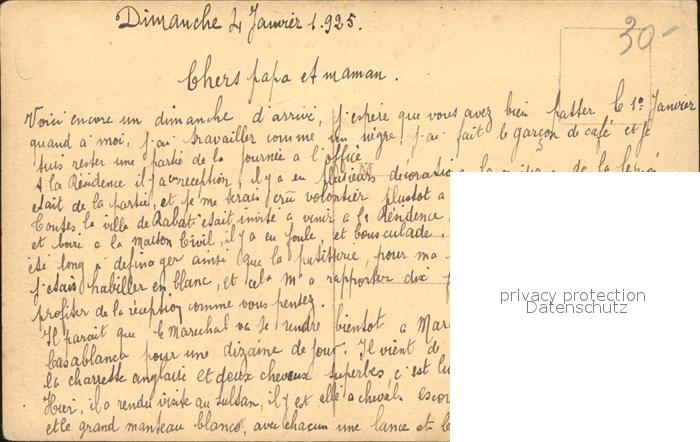 Dimanche 4 Janvier 1.925.
30-
Chers papa et maman.
Voici encore un dimanche d'arrivé, j'espère que vous avez bien passer le 1er Janvier
quand a moi, j'ai travailler comme un nègre, j'ai fait le garçon de café et je
suis rester une partie de la journée a l'office
A la Résidence il y a reception, il y a eu plusieurs décorations la de la
etait de la partie, et je me serais cru volontier plustot a
Toutes la ville de Rabat etait invité a venir a la Résidence
et boire a la maison Civil, il y a eu foule, et bousculade.
été long a definager ainsi que la patisserie, pour ma
j'etais habiller en blanc, et cela m'a rapporter dix
profiter de la réception comme vous pensez.
Il parait que le Marechal va se rendre bientot a Mar
Casablanca pour une dizaine de jour. Il vient de
la charrette anglaise et deux chevaux superbes, c'est lu
Hier, il a rendu visite au sultan, il y est allé a cheval. escor
et le grand manteau blanc, avec chacun une lance et le
privacy protection
Datenschutz